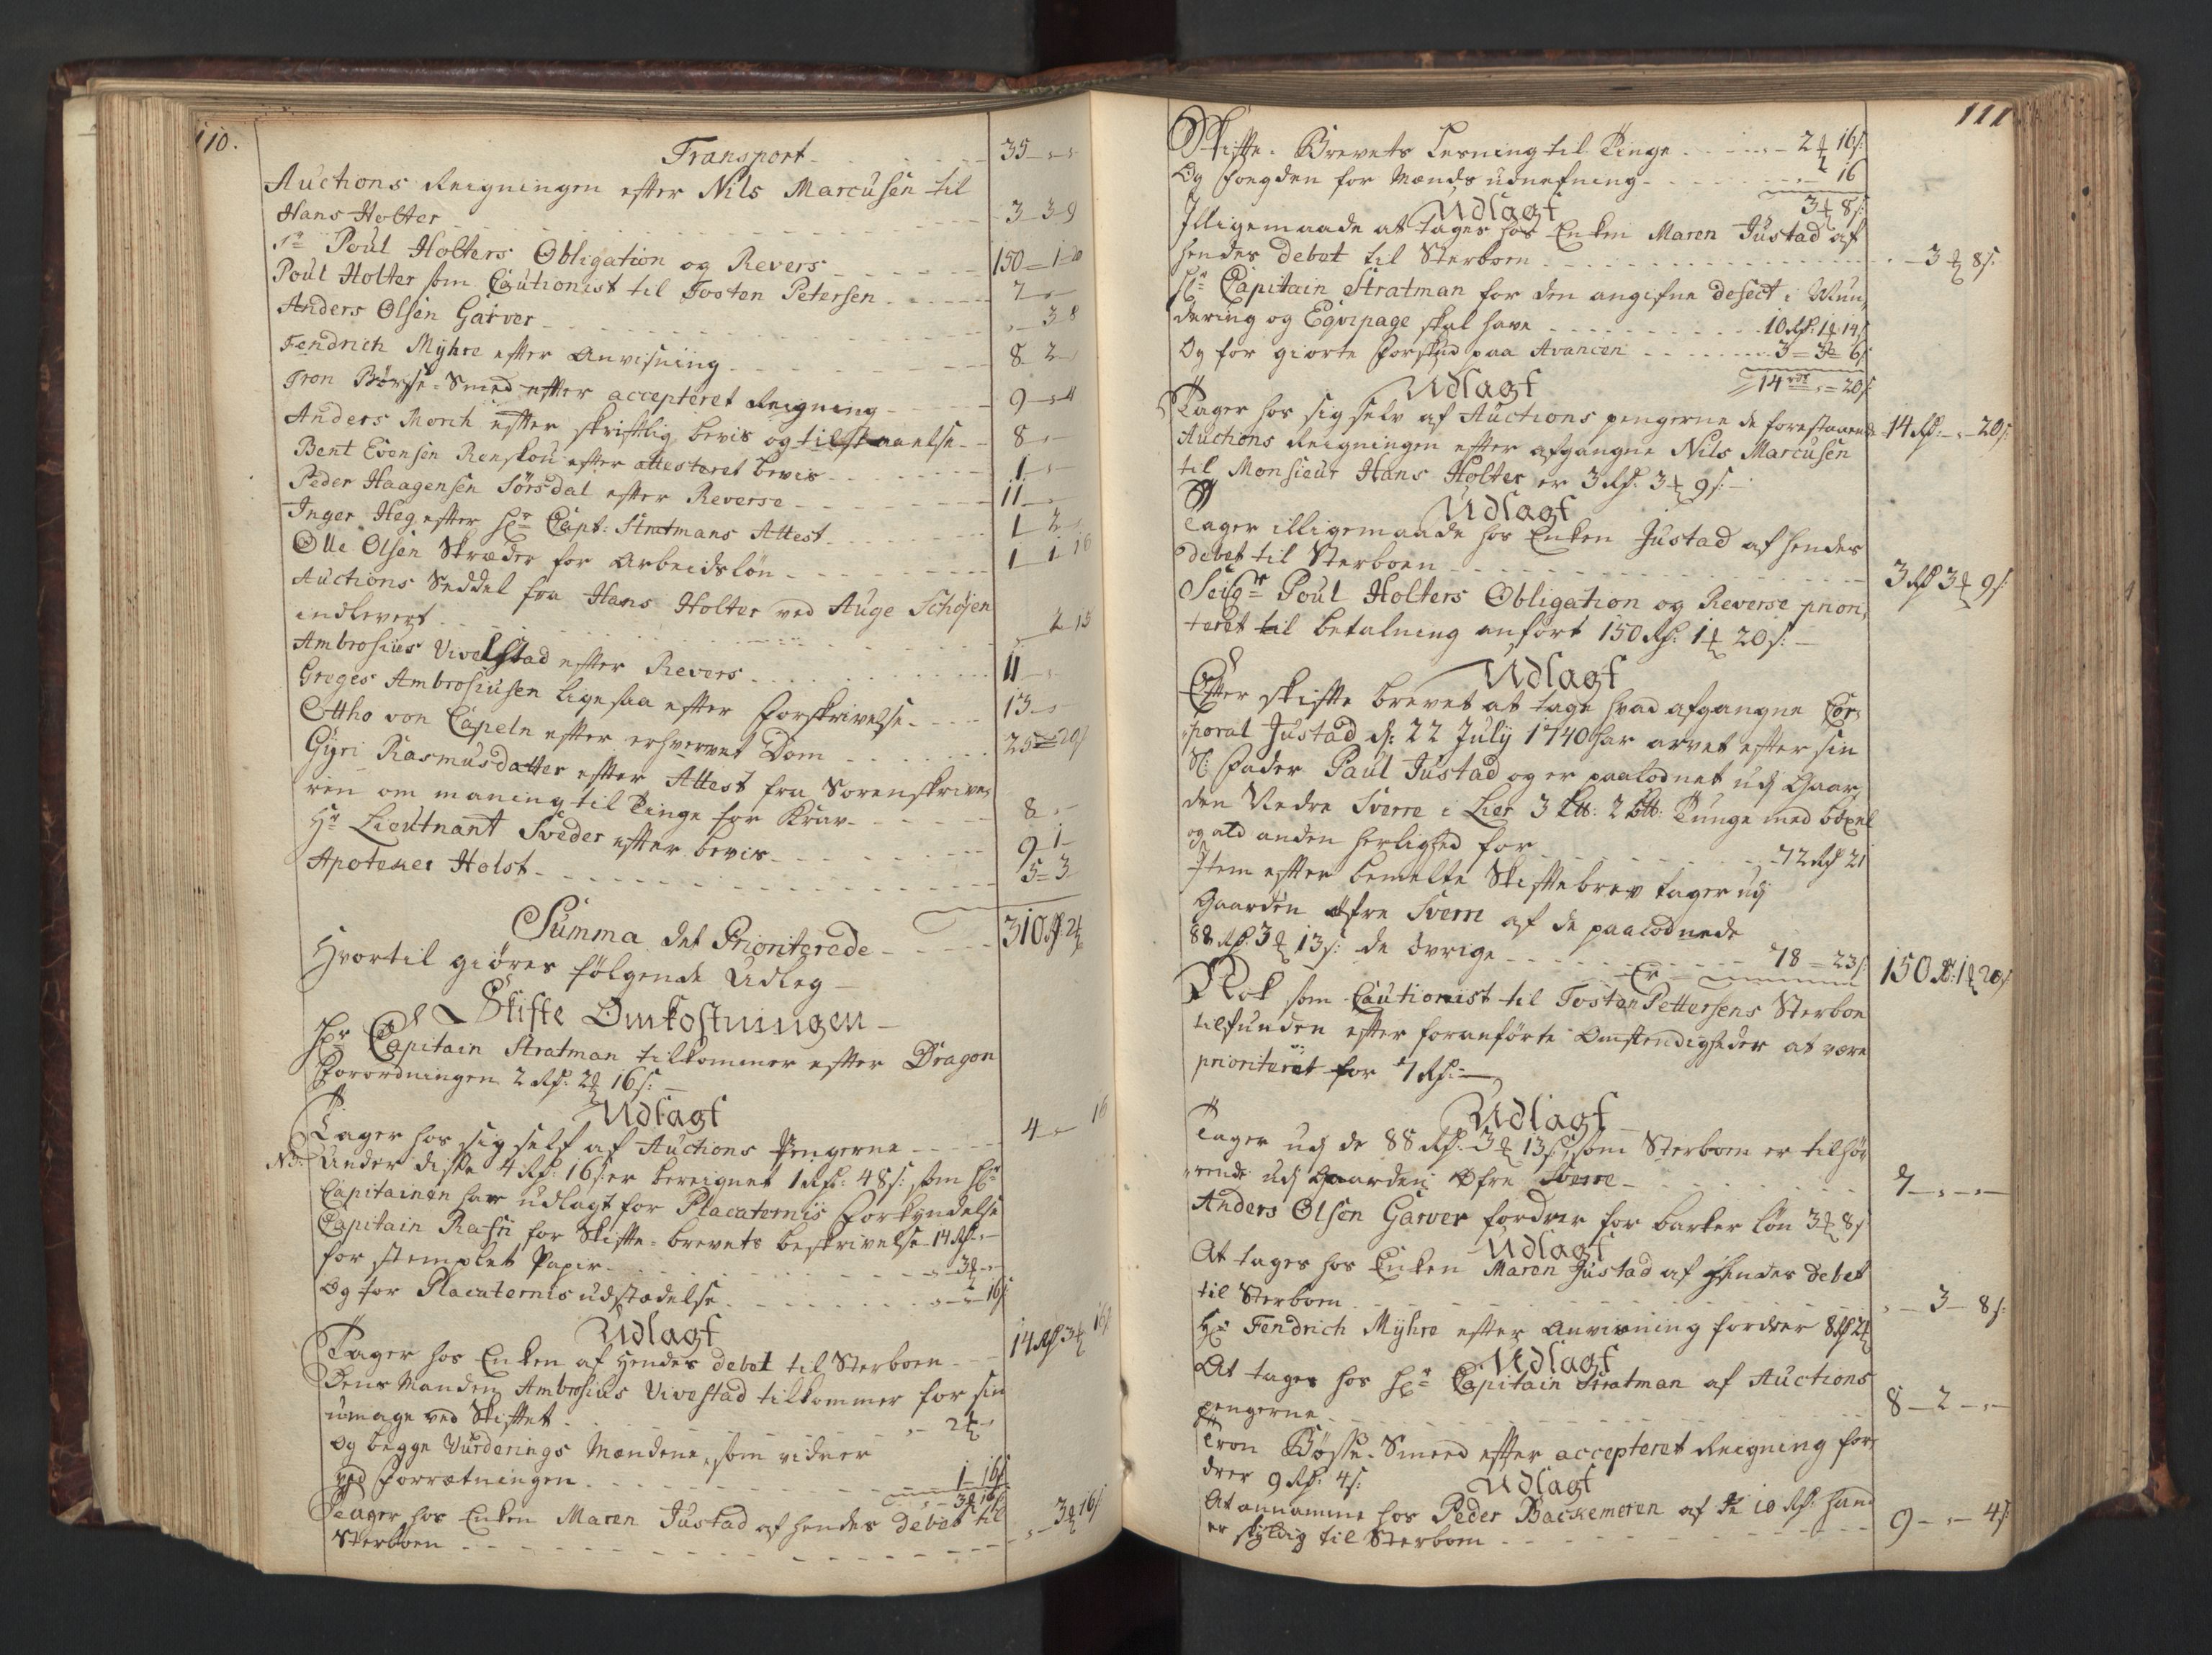 110.
Transport - - - - - 35 - " - "
Auctions Reigningen efter Nils Marcusen til
Hans Holter - - - - - 3 - 3 - 9
Sr Poul Holters Obligation og Revers - - - 150 - 1 - 20
Poul Holter som Cautionist til Tosten Petersen - - - 7 - " -
Anders Olsen Garver - - - " - 3 8
Fendrich Myhre efter Anvisning - - - 8 - 2 -
Tron Børse-Smed efter accepteret Reigning - - - 9 - " - 4
Anders Morch efter skriftlig bevis og tilstaaelse - - 8 - " -
Bent Evensen Renskou efter attesteret bevis - - - 1 - " -
Peder Haagensen Sørsdal efter Reverse - - - 11 - " -
Inger Heg efter Hr Capt: Stratmans Attest - - - 1 - 2 -
Olle Olsen Skræder for Arbeidsløn - - - 1 - 1 - 16
Auctions Seddel fra Hans Holter ved Auge Schøjen
indleveret - - - " - 2 - 15
Ambrosius Vivelstad efter Revers - - - 11 - " -
Greges Ambrosiusen ligesaa efter Forskrivelse - - - 13 - " -
Ottho von Capeln efter erhvervet Dom - - - 25 - " - 20 s
Gyri Rasmusdatter efter Attest fra Sorenskrive,
ren om maning til Tinge for Krav - - - 8 - " -
Hr Lieutnant Sveder efter bevis - - - 9 - 1 -
Apoteker Holst - - - 5 - 3
Summa det Prioriterede - - - 310 Rd 2 ℔
Hvortil giøres følgende Udleg -
Skifte Omkostningen -
Hr Capitain Stratman tilkommer efter Dragon
Forordningen 2 Rd: 2 ℔ 16 s: -
Udlagt
Tager hos sig self af Auctions Pengerne - - - 4 - " - 16
NB: Under diske 4 Rd: 16 s: er beregnet 1 Rd: 48 s: som Hr
Capitainen har udlagt for Placaternis Forkyndelse
Capitain Rasch for Skifte-brevets beskrivelse 14 Rd: " -
for stemplet Papir - - - " - 3 ℔ -
Og for Placaternis udstædelse - - - " - " - 16 s
Udlagt
Tager hos Enken af Hendes debet til Sterboen - - - 14 Rd 3 ℔ 16 s
Lens Manden Ambrosius Vivestad tilkommer for sin
umage ved Skiftet - - - " - 2 ℔ - "
Og begge Vurderings Mændene, som vidner
ved Forrætningen - - - 1 - 16 s
" - 3 ℔ 16 s
Tager hos Enken Maren Justad af hendes debet til
Sterboen - - - " - 3 ℔ 16 s
111
Skifte-Brevets Lesning til Tinge - - - 2 ℔ 16 s:
Og Foegden for Mænds udnefning - - - " 16
3 ℔ 8 s:
Udlagt
Illigemaade at tages hos Enken Maren Justad af
hendes debet til Sterboen - - - " - 3 ℔ 8 s:
Hr Capitain Stratman for den angifne defect i Mun,
dering og Eqvipage skal have - - - 10 Rd: 1 ℔ 14 s
Og for giorte Forskud paa Avancen - - - 3 - 3 ℔ 6 s
14 rdr " = 20 s
Udlagt
Tager hos sig selv af Auctions pengerne de forestaaende 14 Rd: - " - 20 s:
Auctions Reigningen efter afgangne Nils Marcusen
til Monsieur Hans Holter er 3 Rd: 3 ℔ 9 s: -
Udlagt
Tager illigemaade hos Enken Justad af hendes
debet til Sterboen - - - 3 Rd 3 ℔ 9 s:
Seigr Poul Holters Obligation og Reverse priori,
teret til betalning anført 150 Rd: 1 ℔ 20 s: -
Udlagt
Efter skifte brevet at tage hvad afgangne Cor,
poral Justad d: 22 July 1740 har arvet efter sin
Sl: Fader Paul Justad og er paalodnet udj Gaar,
den Nedre Sverre i Lier 3 ℔: 2 ℔: Tunge med bøxel
og ald anden herlighed for - - - 72 Rd 21
Item efter bemelte Skiftebrev tager udj
Gaarden Øfre Sverre af de paalodnede
88 Rd: 3 ℔ 13 s: de øvrige - - - 78 = 23 s:
Er - - - 150 Rd: 1 ℔ 20 s
Nok som Cautionist til Tosten Pettersens Sterboe
tilfunden efter foranførte Omstendigheder at være
prioriteret for 7 Rd: -
Udlagt
Tager udj de 88 Rd: 3 ℔ 13 s:, som Sterboen er tilhør
rende udj Gaarden Øfre Sverre - - - 7 - " - " -
Anders Olsen Garver fordrer for barker løn 3 ℔ 8 s
Udlagt
At tages hos Enken Maren Justad af hendes debet
til Sterboen - - - " - 3 - 8 s:
Hr Fendrich Myhre efter Anvisning fordrer 8 Rd 2 ℔
Udlagt
At tages hos Hr Capitain Stratman af Auctions
pengerne - - - 8 - 2 - " -
Tron Bøsse-Smeed efter accepteret Reigning for,
drer 9 Rd: 4 s:
Udlagt
At annamme hos Peder Backemeren af de 10 Rd: hand
er skyldig til Sterboen - - - 9 - " - 4 s